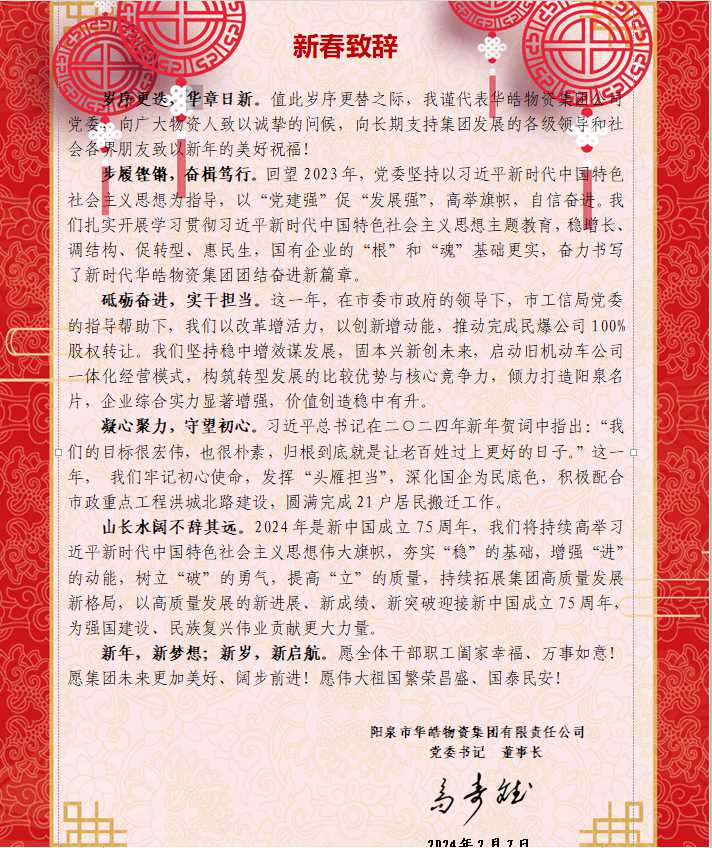 新春致辞
岁序更迭，华章日新。值此岁序更替之际，我谨代表华皓物资集团公司
党委，向广大物资人致以诚挚的问候，向长期支持集团发展的各级领导和社
会各界朋友致以新年的美好祝福！
步履铿锵，奋楫笃行。回望 2023 年，党委坚持以习近平新时代中国特色
社会主义思想为指导，以“党建强”促“发展强”，高举旗帜，自信奋进。我
们扎实开展学习贯彻习近平新时代中国特色社会主义思想主题教育，稳增长、
调结构、促转型、惠民生，国有企业的“根”和“魂”基础更实，奋力书写
了新时代华皓物资集团团结奋进新篇章。
砥砺奋进，实干担当。这一年，在市委市政府的领导下，市工信局党委
的指导帮助下，我们以改革增活力，以创新增动能，推动完成民爆公司 100%
股权转让。我们坚持稳中增效谋发展，固本兴新创未来，启动旧机动车公司
一体化经营模式，构筑转型发展的比较优势与核心竞争力，倾力打造阳泉名
片，企业综合实力显著增强，价值创造稳中有升。
凝心聚力，守望初心。习近平总书记在二〇二四年新年贺词中指出：“我
们的目标很宏伟，也很朴素，归根到底就是让老百姓过上更好的日子。”这一
年， 我们牢记初心使命，发挥“头雁担当”，深化国企为民底色，积极配合
市政重点工程洪城北路建设，圆满完成 21 户居民搬迁工作。
山长水阔不辞其远。2024 年是新中国成立 75 周年，我们将持续高举习
近平新时代中国特色社会主义思想伟大旗帜，夯实“稳”的基础，增强“进”
的动能，树立“破”的勇气，提高“立”的质量，持续拓展集团高质量发展
新格局，以高质量发展的新进展、新成绩、新突破迎接新中国成立 75 周年，
为强国建设、民族复兴伟业贡献更大力量。
新年，新梦想；新岁，新启航。愿全体干部职工阖家幸福、万事如意！
愿集团未来更加美好、阔步前进！愿伟大祖国繁荣昌盛、国泰民安！
阳泉市华皓物资集团有限责任公司
党委书记 董事长
2024 年 2 月 7 日